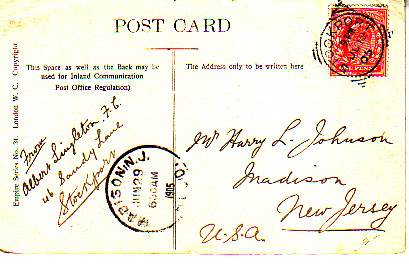 POST CARD
This Space as well as the Back may be
used for Inland Communication
Post Office Regulation)
The Address only to be written here
Empire Series No. 31 London W. C. Copyright
From
Albert Singleton F.C.
46 Sandy Lane
Stockport
MADISON, N.J.
JUN 29
630AM
1905
STOCKPORT
ONE PENNY
Mr Harry L. Johnson
Madison
New Jersey
U.S.A.